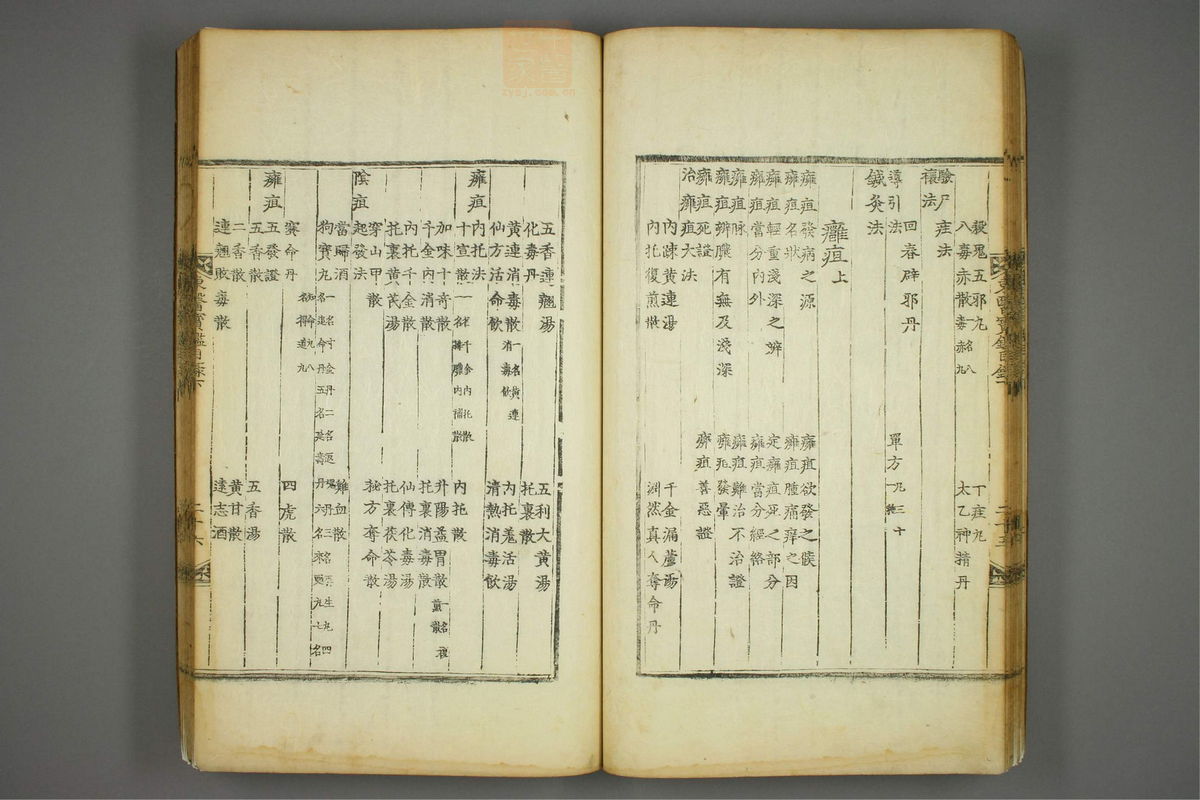 殺鬼五邪丸
丁疰丸
八毒赤散一名八毒赤丸
太乙神精丹
驗尸疰法
禳法
回春辟邪丹
導引法
單方凡三十
鍼灸法
癰疽上
癰疽發病之源
癰疽欲發之候
癰疽名狀
癰疽腫痛痒之因
癰疽輕重淺深之辨
定癰疽死之部分
癰疽當分內外
癰疽當分經絡
癰疽脉
癰疽難治不治證
癰疽辨膿有無及淺深
癰疽發暈
癰疽死證
癰疽善惡證
治癰疽大法
內踈黃連湯
千金漏蘆湯
內托復煎散
淵然眞人奪命丹
五香連翹湯
五利大黃湯
化毒丹
托裏散
黃連消毒散一名黃連消毒飮
內托羌活湯
仙方活命飮
清熱消毒飮
癰疽內托法
十宣散
內托散
加味十奇散
升陽益胃散
千金內消散
托裏消毒散
內托千金散
仙傳化毒湯
托裏黃芪湯
托裏茯苓湯
穿山甲散
秘方奪命散
陰疽起發法
當歸酒
雞血散
狗寶丸
奪命丹
四虎散
癰疽五發證
五香散
五香湯
二香散
黃甘散
連翹敗毒散
遠志酒
東醫寶鑑目錄下
二十五
東醫寶鑑目錄下
二十六